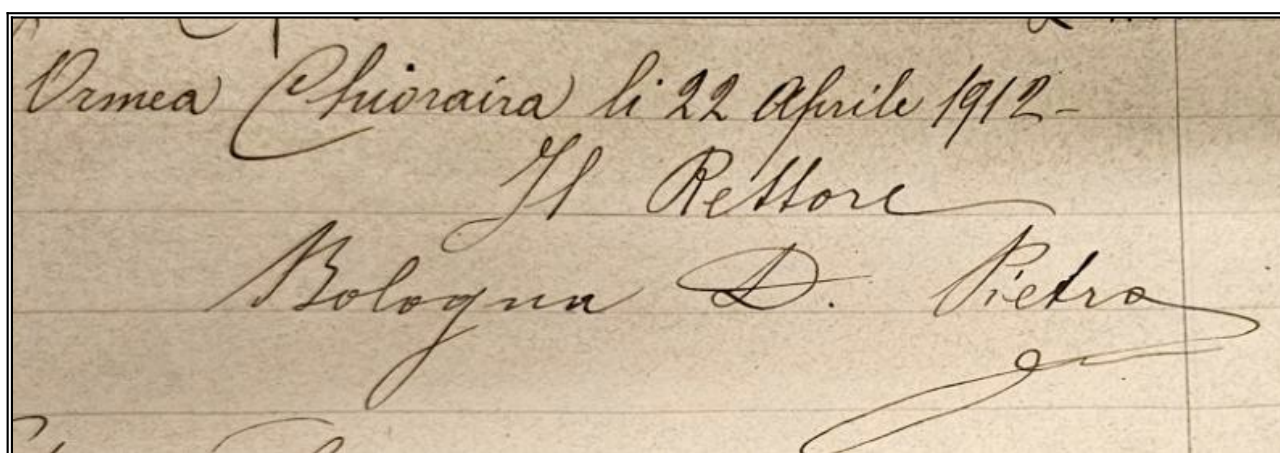 Ormea Chioraira li 22 Aprile 1912-
Il Rettore
Bologna D. Pietro